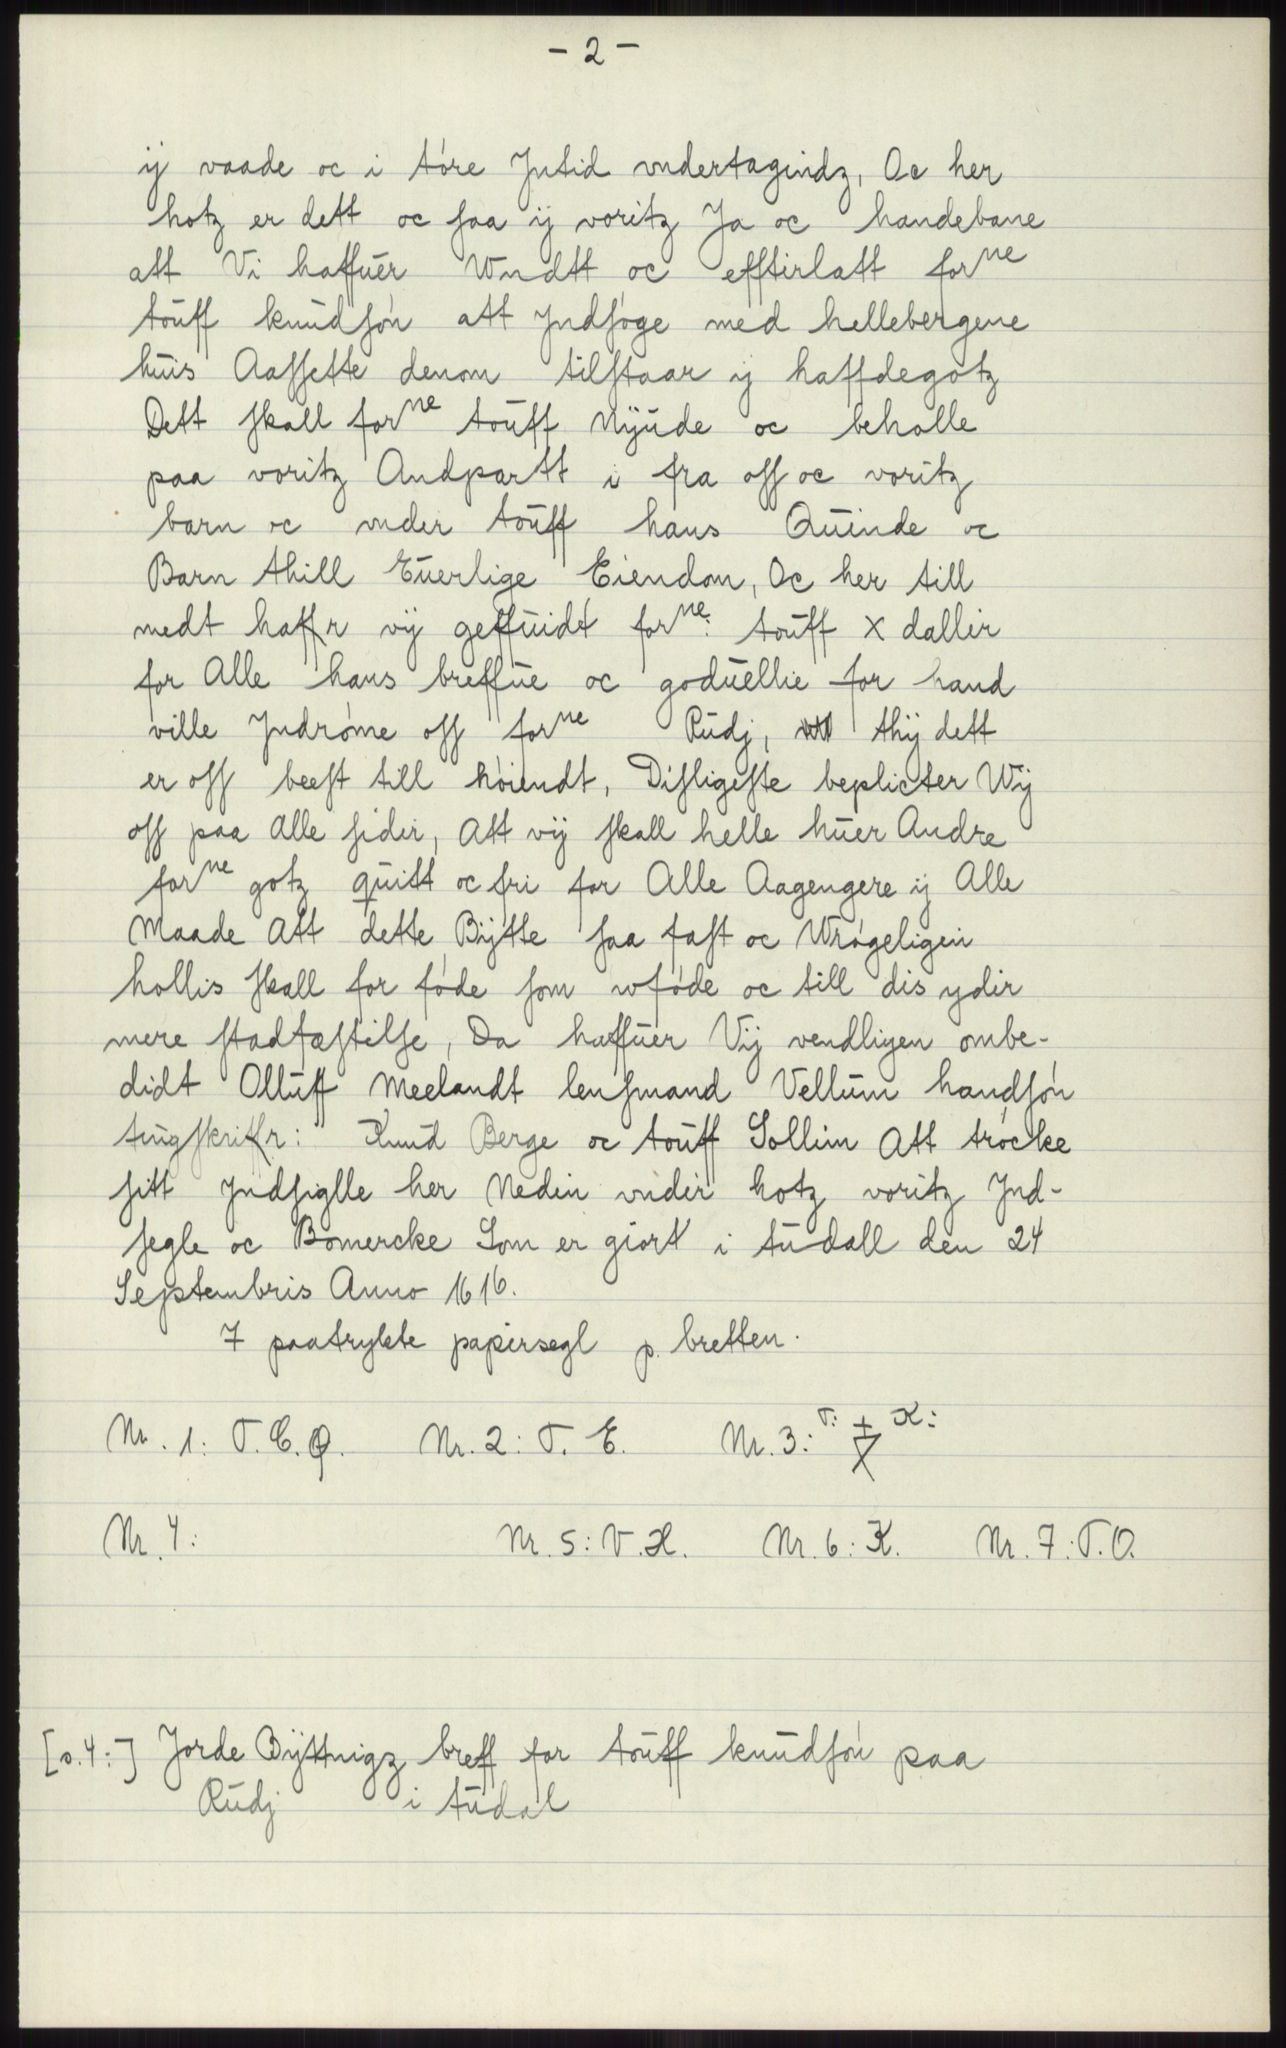 - 2 -
ij vaade oc i tóre Jntid vndertagindz, Oc her
hotz er dett oc saa ij voritz Ja oc handebane
att Vi haffuer Wndtt oc effterlatt forne
touff knudsón att Jndsóge med hellebergene
huis Aassette denom tilstaar ij haffdegotz
Dett skall forne touff Nÿude oc beholle
paa voritz Andpartt i fra oss oc voritz
barn oc vnder touff hans Quinde oc
Barn thill Euerlige Eiendom, Oc her till
medt haffr vij geffuidt forne: touff X dallir
for Alle hans breffue oc goduellie for hand
ville Jndróme oss forne Rudj, thij dett
er oss beest till hóiendt, Disligeste beplicter Wij
oss paa Alle sider, Att vij skall helle huer Andre
forne gotz quitt oc fri for Alle Aagengere ij Alle
Maade Att dette Bijtte saa fast oc Wrógeligen
hollis skall for fóde som wfóde oc till dis ydir
mere stadfæstilse, Da haffuer Vij vendligen ombe-
didt Olluff Meelandt lensmand Vellum handsón
tingskriffr: Knud Berge oc touff Sollim Att trócke
sitt Jndsiglle her Nedin vndir hotz voritz Jnd-
segle oc Bomercke Som er giort i tudall den 24
Septembris Anno 1616.
7 paatrykte papirsegl p. bretten.
Nr. 1: T. E. O. Nr. 2: T. E. Nr. 3: T: K:
Nr. 4: Nr. 5: V. H. Nr. 6: K. Nr. 7: T. O.
[s. 4:] Jorde Bÿttnigz breff for touff knudsón paa
Rudj i tudal